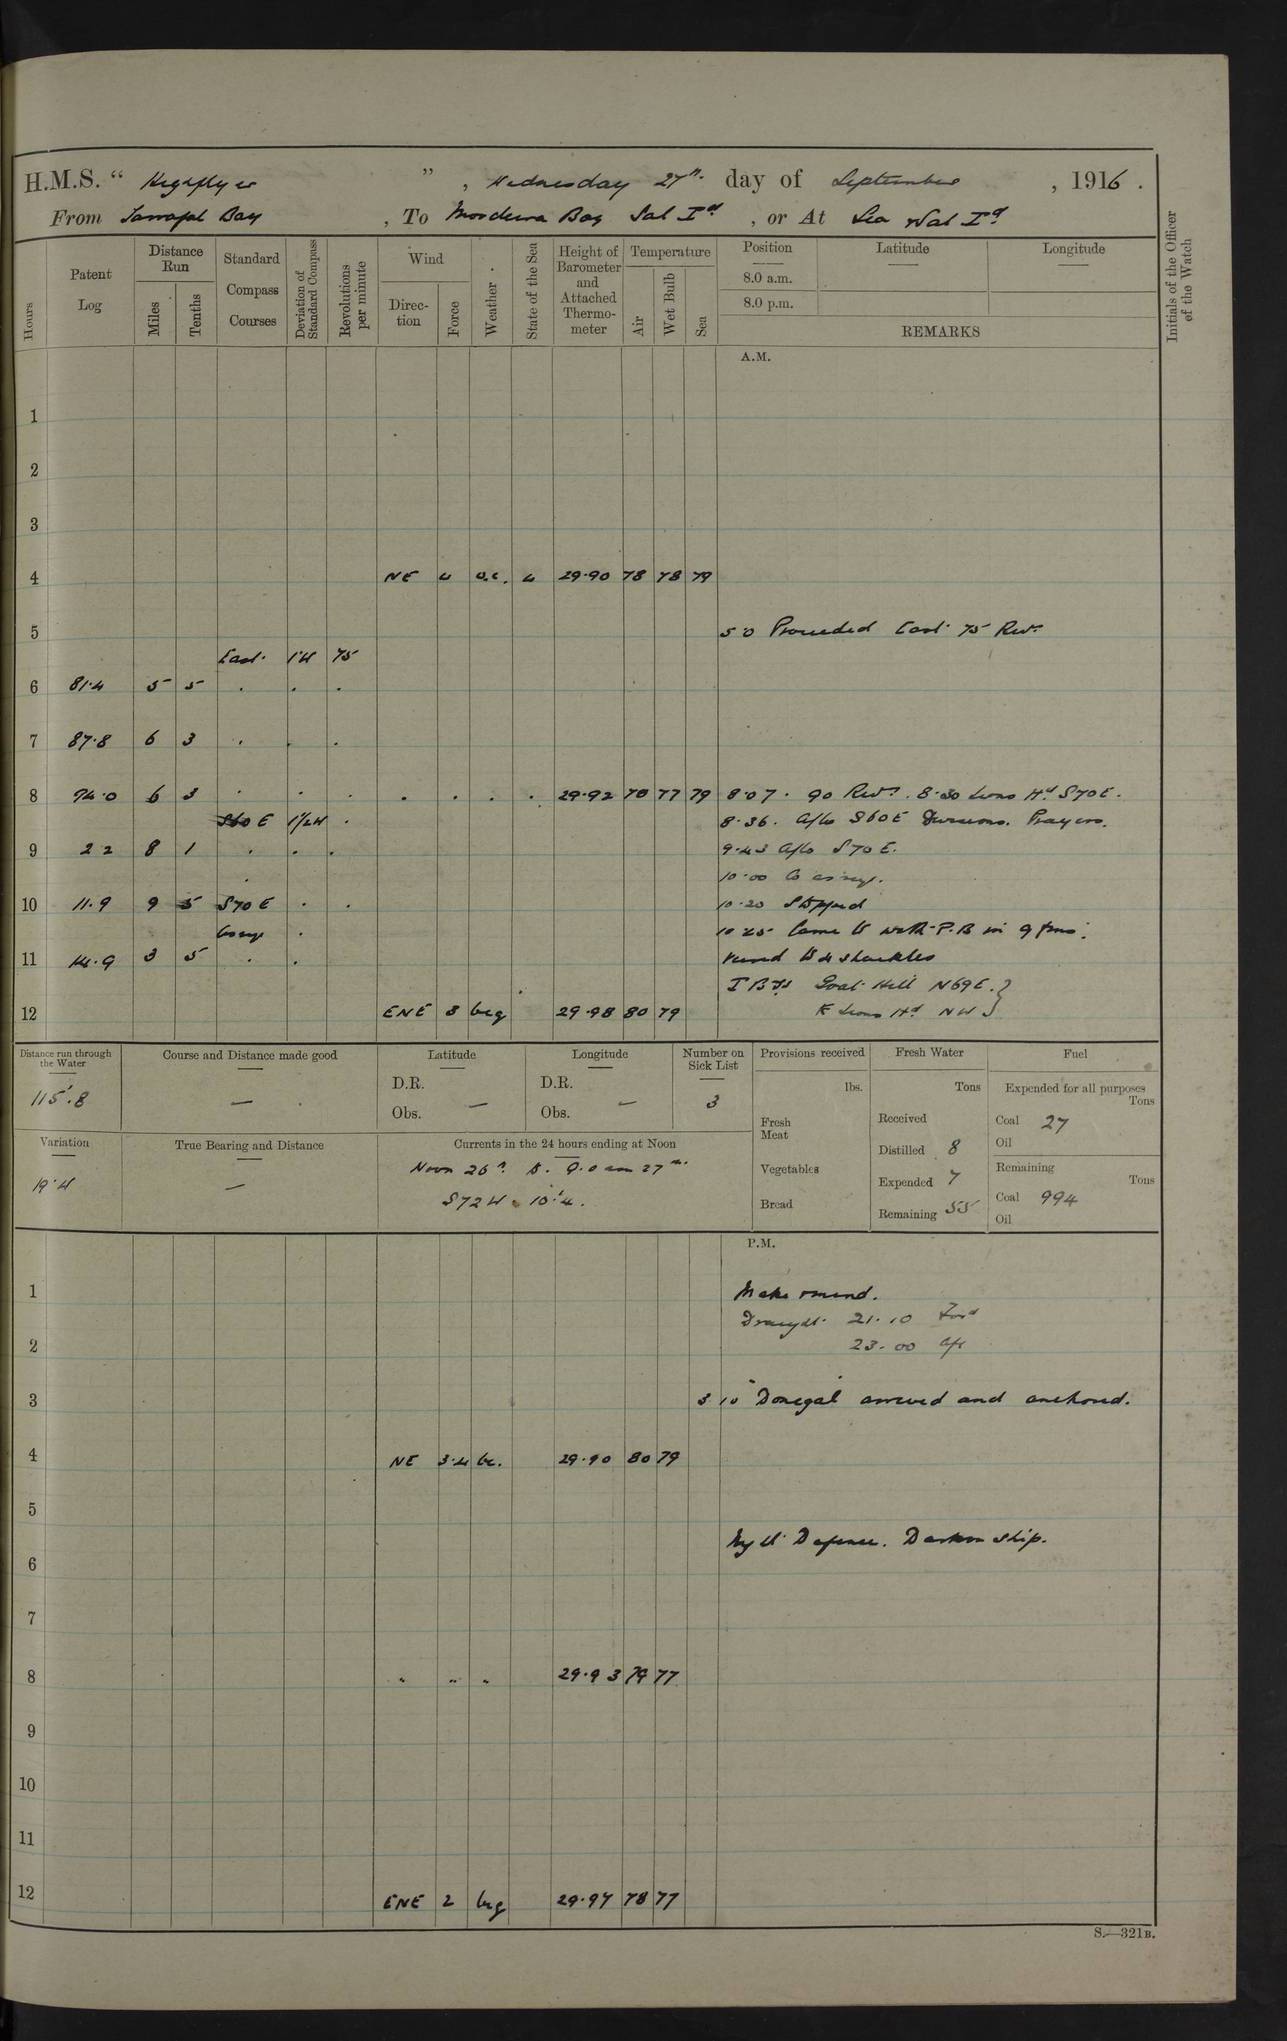 H.M.S. " Highflyer ", Wednesday 27th day of September, 1916.
From Tarrafal Bay, To Mordeira Bay Sal Id, or At Sea & Sal Id
Hours
Patent Log
Distance Run
Miles
Tenths
Standard Compass Courses
Deviation of Standard Compass
Revolutions per minute
Wind
Direction
Force
Weather.
State of the Sea
Height of Barometer and Attached Thermometer
Temperature
Air
Wet Bulb
Sea
Position
8.0 a.m.
8.0 p.m.
Latitude
Longitude
REMARKS
Initials of the Officer of the Watch
A.M.
1
2
3
4 NE 4 o.c. 4 29.90 78 78 79
5 5.0 Proceeded East 75 Revs
East 1°W 75
6 81.4 5 5 . . .
7 87.8 6 3 . . .
8 94.0 6 3 . . . . . . . 29.92 78 77 79 8.07. 90 Revs. 8.30 Lions Hd S70E.
S60E 1½W . 8.36. A/Co S60E Divisions. Prayers.
9 2 2 8 1 . . . 9.43 A/Co S70E.
10.00 Co as req.
10 11.9 9 5 S70E . . 10.20 Stopped
as req . 10.25 Came to with P.B in 9 fms.
11 14.9 3 5 . . Veered to 4 shackles
Goat Hill N69E.
12 ENE 3 bcg 29.98 80 79 Lions Hd NW
Distance run through the Water
115.8
Course and Distance made good
—
Latitude
D.R.
Obs. —
Longitude
D.R.
Obs. —
Number on Sick List
3
Variation
19°W
True Bearing and Distance
—
Currents in the 24 hours ending at Noon
Noon 26th to 9.0 am 27th
S72W. 10'.4.
Provisions received
lbs.
Fresh Meat
Vegetables
Bread
Fresh Water
Tons
Received
Distilled 8
Expended 7
Remaining 55
Fuel
Expended for all purposes
Tons
Coal 27
Oil
Remaining
Tons
Coal 994
Oil
P.M.
1 Make & mend.
Draught 21.10 Ford
2 23.00 Aft
3 3 10 Donegal arrived and anchored.
4 NE 3.4 bc. 29.90 80 79
5
Night Defence. Darken ship.
6
7
8 " " " 29.93 79 77
9
10
11
12 ENE 2 bcg 29.97 78 77
S.—321B.